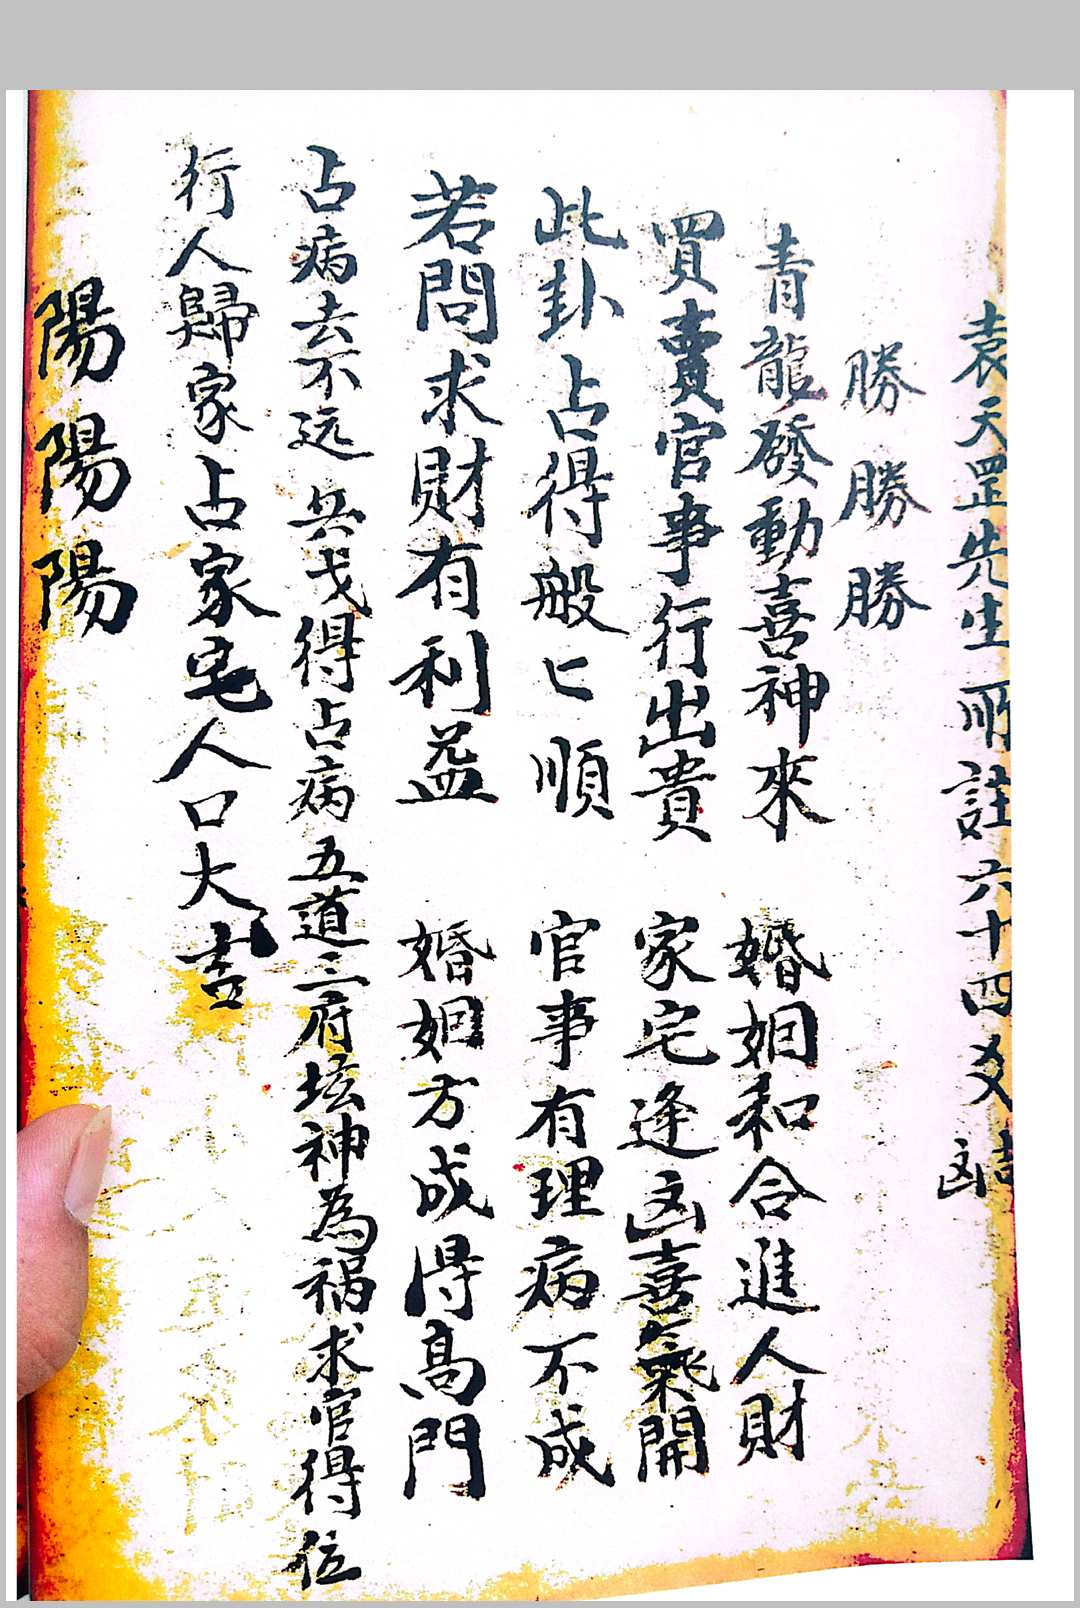 袁天罡先生所註六十四爻吉凶
勝勝勝
青龍發動喜神來 婚姻和合進人財
買賣官事行出貴 家宅逢凶喜氣開
此卦占得般匕順 官事有理病不成
若問求財有利益 婚姻方成得高門
占病去不远兵戈得占病五道三府坛神為祸求官得位
行人歸家占家宅人口大吉
陽陽陽